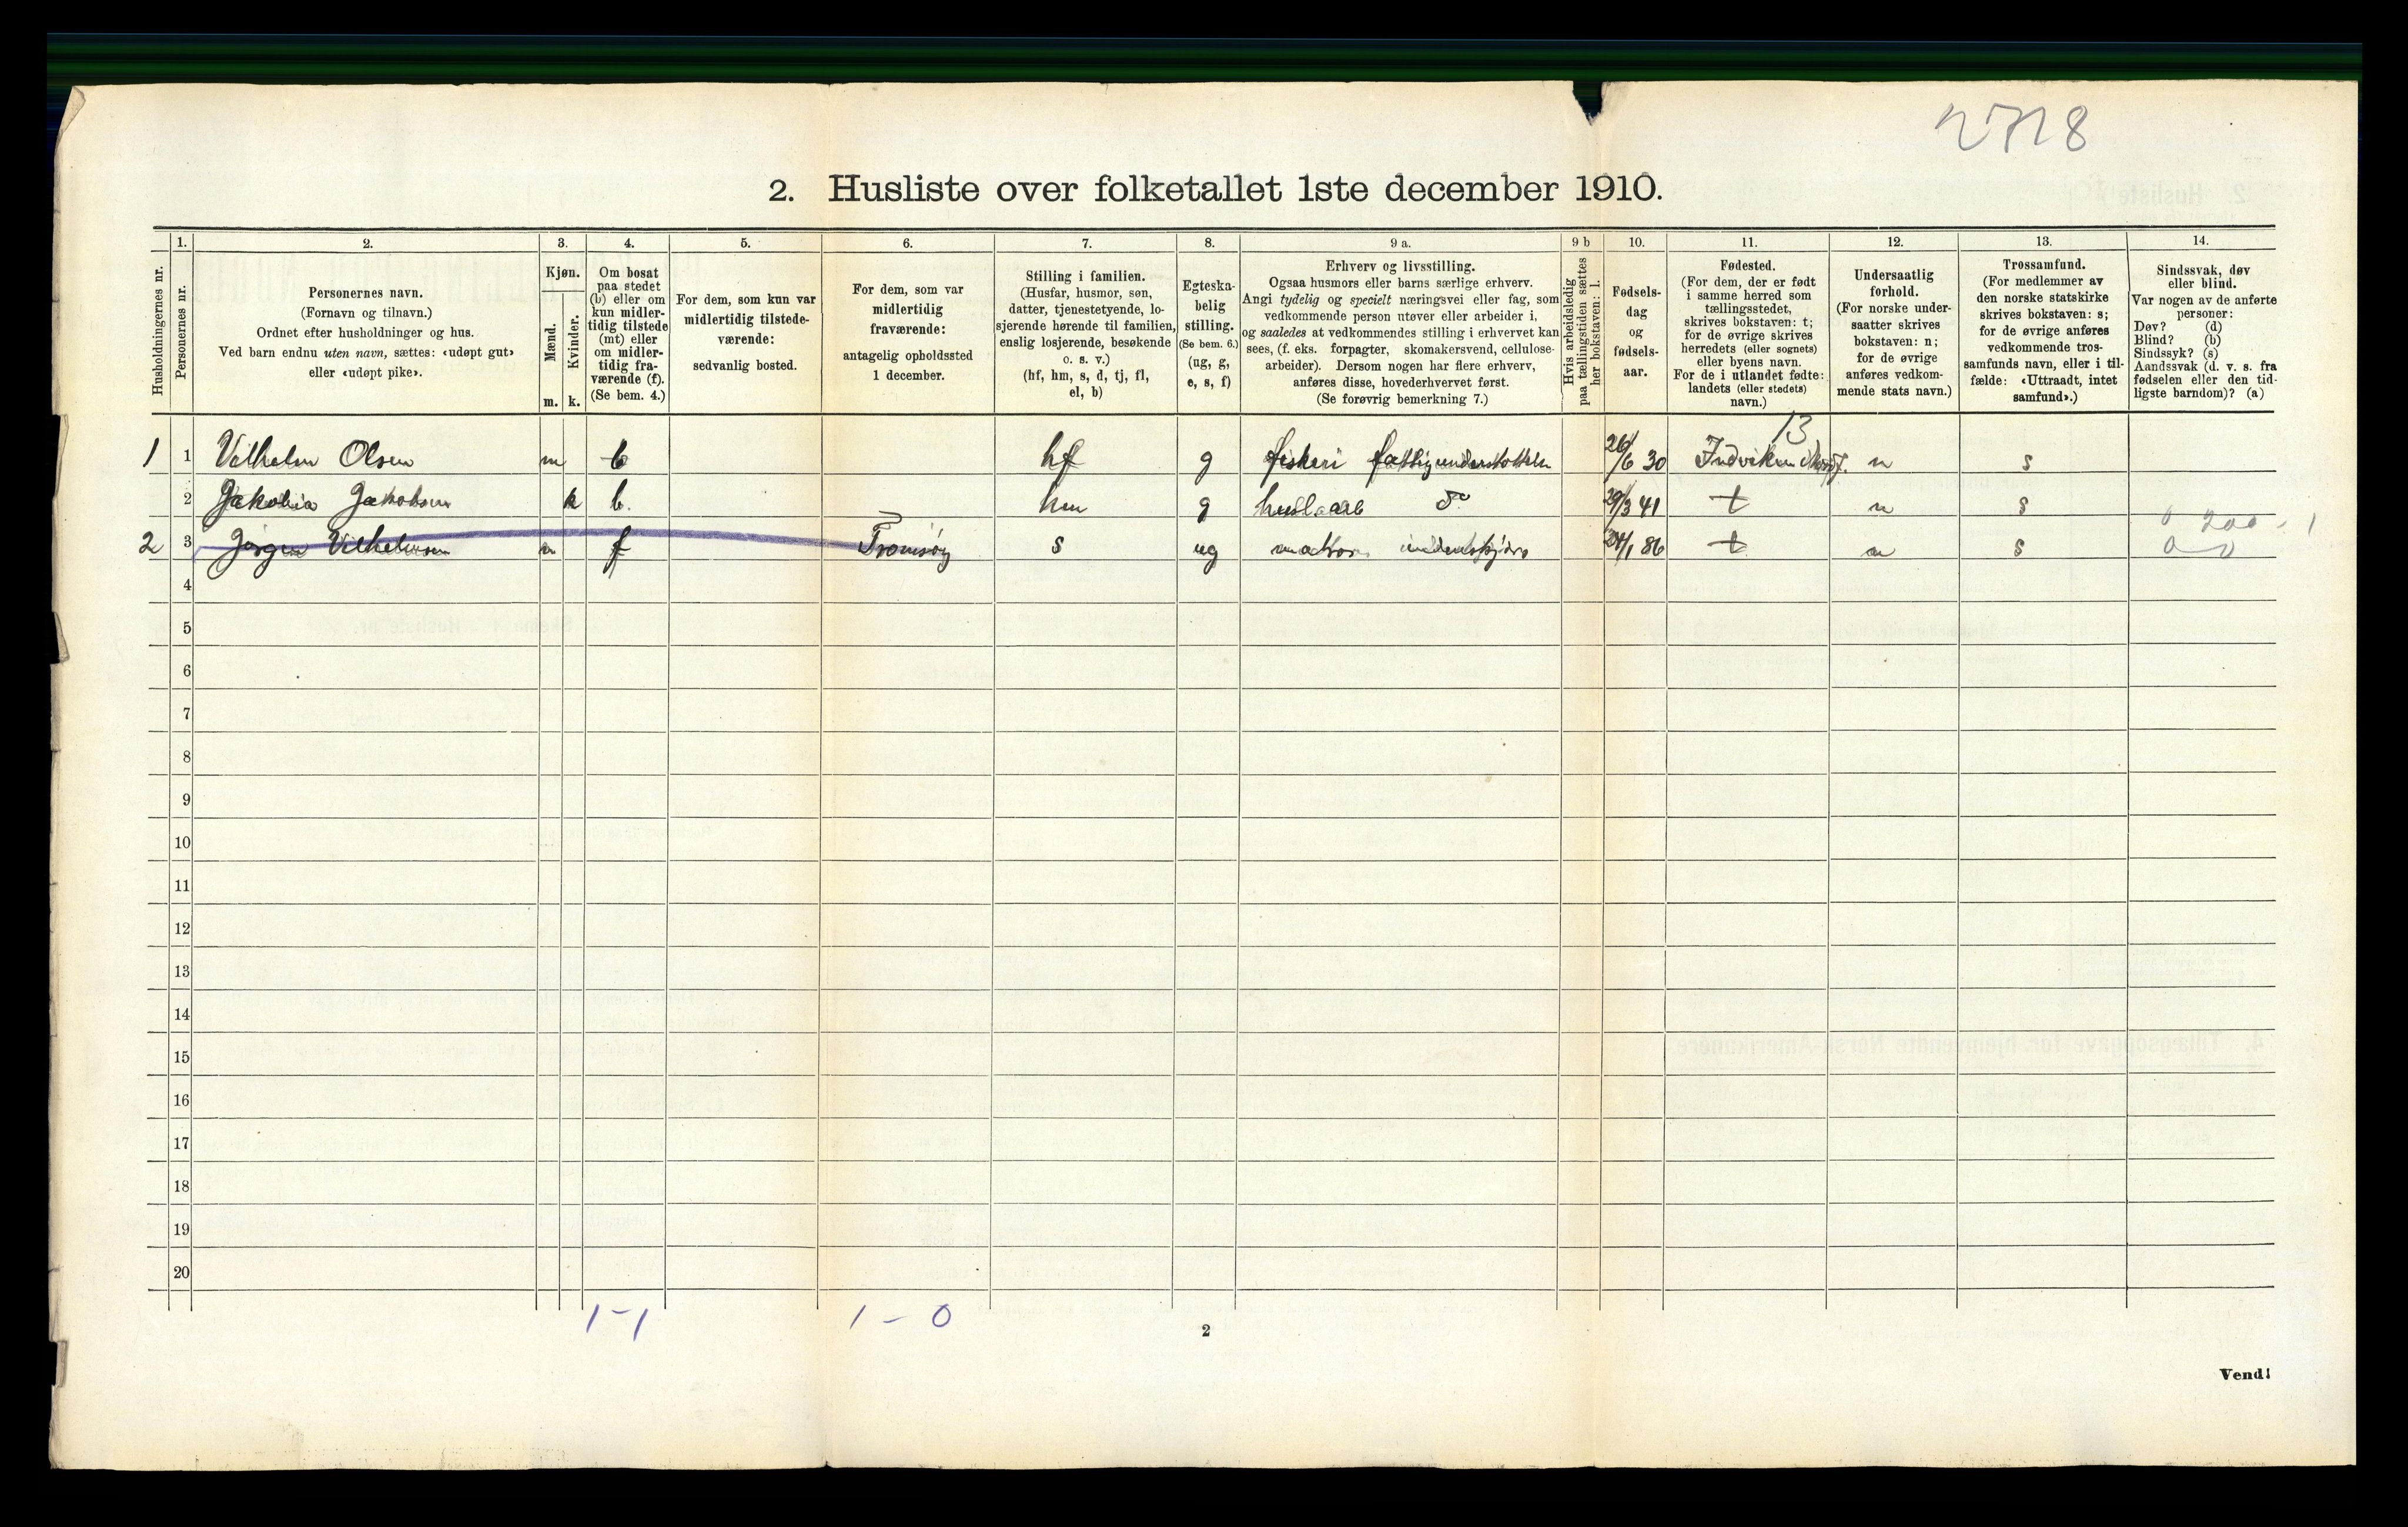 2728
2. Husliste over folketallet 1ste december 1910.
Husholdningernes nr.
1.
Personernes nr.
2.
Personernes navn.
(Fornavn og tilnavn.)
Ordnet efter husholdninger og hus.
Ved barn endnu uten navn, sættes: «udøpt gut»
eller «udøpt pike».
3.
Kjøn.
Mænd.
Kvinder.
m. k.
4.
Om bosat
paa stedet
(b) eller om
kun midler-
tidig tilstede
(mt) eller
om midler-
tidig fra-
værende (f).
(Se bem. 4.)
5.
For dem, som kun var
midlertidig tilstede-
værende:
sedvanlig bosted.
6.
For dem, som var
midlertidig
fraværende:
antagelig opholdssted
1 december.
7.
Stilling i familien.
(Husfar, husmor, søn,
datter, tjenestetyende, lo-
sjerende hørende til familien,
enslig losjerende, besøkende
o. s. v.)
(hf, hm, s, d, tj, fl,
el, b)
8.
Egteska-
belig
stilling.
(Se bem. 6.)
(ug, g,
e, s, f)
9 a.
Erhverv og livsstilling.
Ogsaa husmors eller barns særlige erhverv.
Angi tydelig og specielt næringsvei eller fag, som
vedkommende person utøver eller arbeider i,
og saaledes at vedkommendes stilling i erhvervet kan
sees, (f. eks. forpagter, skomakersvend, cellulose-
arbeider). Dersom nogen har flere erhverv,
anføres disse, hovederhvervet først.
(Se forøvrig bemerkning 7.)
9 b
Hvis arbeidsledig
paa tællingstiden sættes
her bokstaven: l.
10.
Fødsels-
dag
og
fødsels-
aar.
11.
Fødested.
(For dem, der er født
i samme herred som
tællingsstedet,
skrives bokstaven: t;
for de øvrige skrives
herredets (eller sognets)
eller byens navn.
For de i utlandet fødte:
landets (eller stedets)
navn.)
12.
Undersaatlig
forhold.
(For norske under-
saatter skrives
bokstaven: n;
for de øvrige
anføres vedkom-
mende stats navn.)
13.
Trossamfund.
(For medlemmer av
den norske statskirke
skrives bokstaven: s;
for de øvrige anføres
vedkommende tros-
samfunds navn, eller i til-
fælde: «Uttraadt, intet
samfund».)
14.
Sindssvak, døv
eller blind.
Var nogen av de anførte
personer:
Døv? (d)
Blind? (b)
Sindssyk? (s)
Aandssvak (d. v. s. fra
fødselen eller den tid-
ligste barndom)? (a)
13
1 1 Vilhelm Olsen m b hf g fiskeri fattigunderstöttelse 26/6 30 Indviken n s
2 Jakobia Jakobsen k b. hm g do 29/3 41 t n s
2 3 Jörgen Vilhelmsen m f Tromsöy s ug matros 24/1 86 t n s
4
5
6
7
8
9
10
11
12
13
14
15
16
17
18
19
20
1-1 1-0
2
Vend!